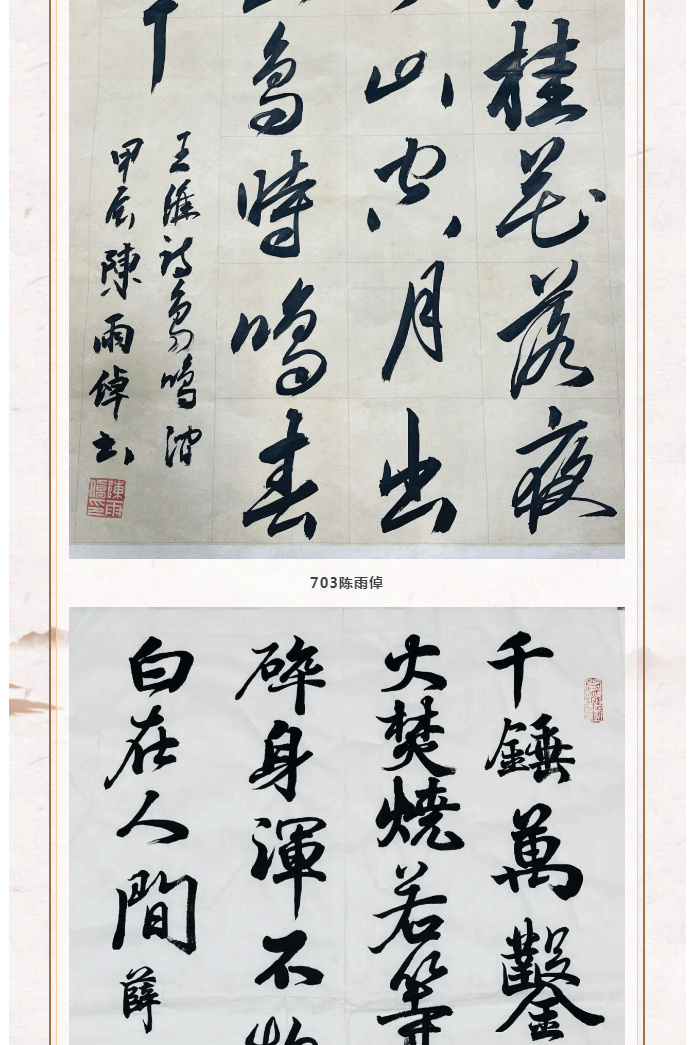 桂花落夜
山空月出
鳥時鳴春
王維詩鳥鳴澗
甲辰陳雨倬书
703陈雨倬
千錘萬鑿
火焚燒若等
碎身渾不
白在人間
薛